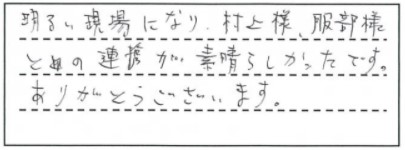 明るい現場になり、村上様、服部様
との連携が素晴らしかったです。
ありがとうございます。